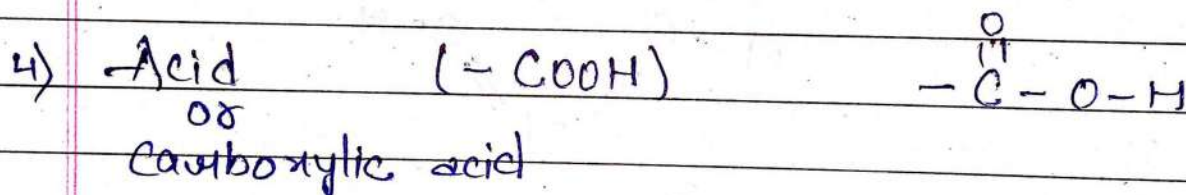 O
||
4) Acid (- COOH) - C - O - H
or
Carboxylic acid